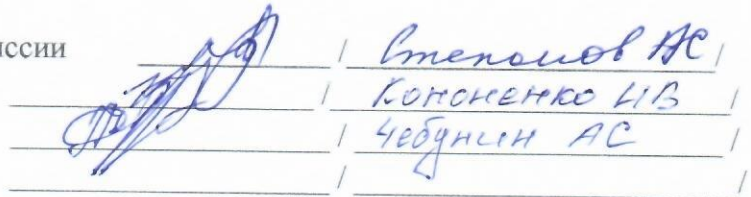 иссии / Степанов АС /
/ Кононенко ИВ /
/ Чебунин АС /
/ /